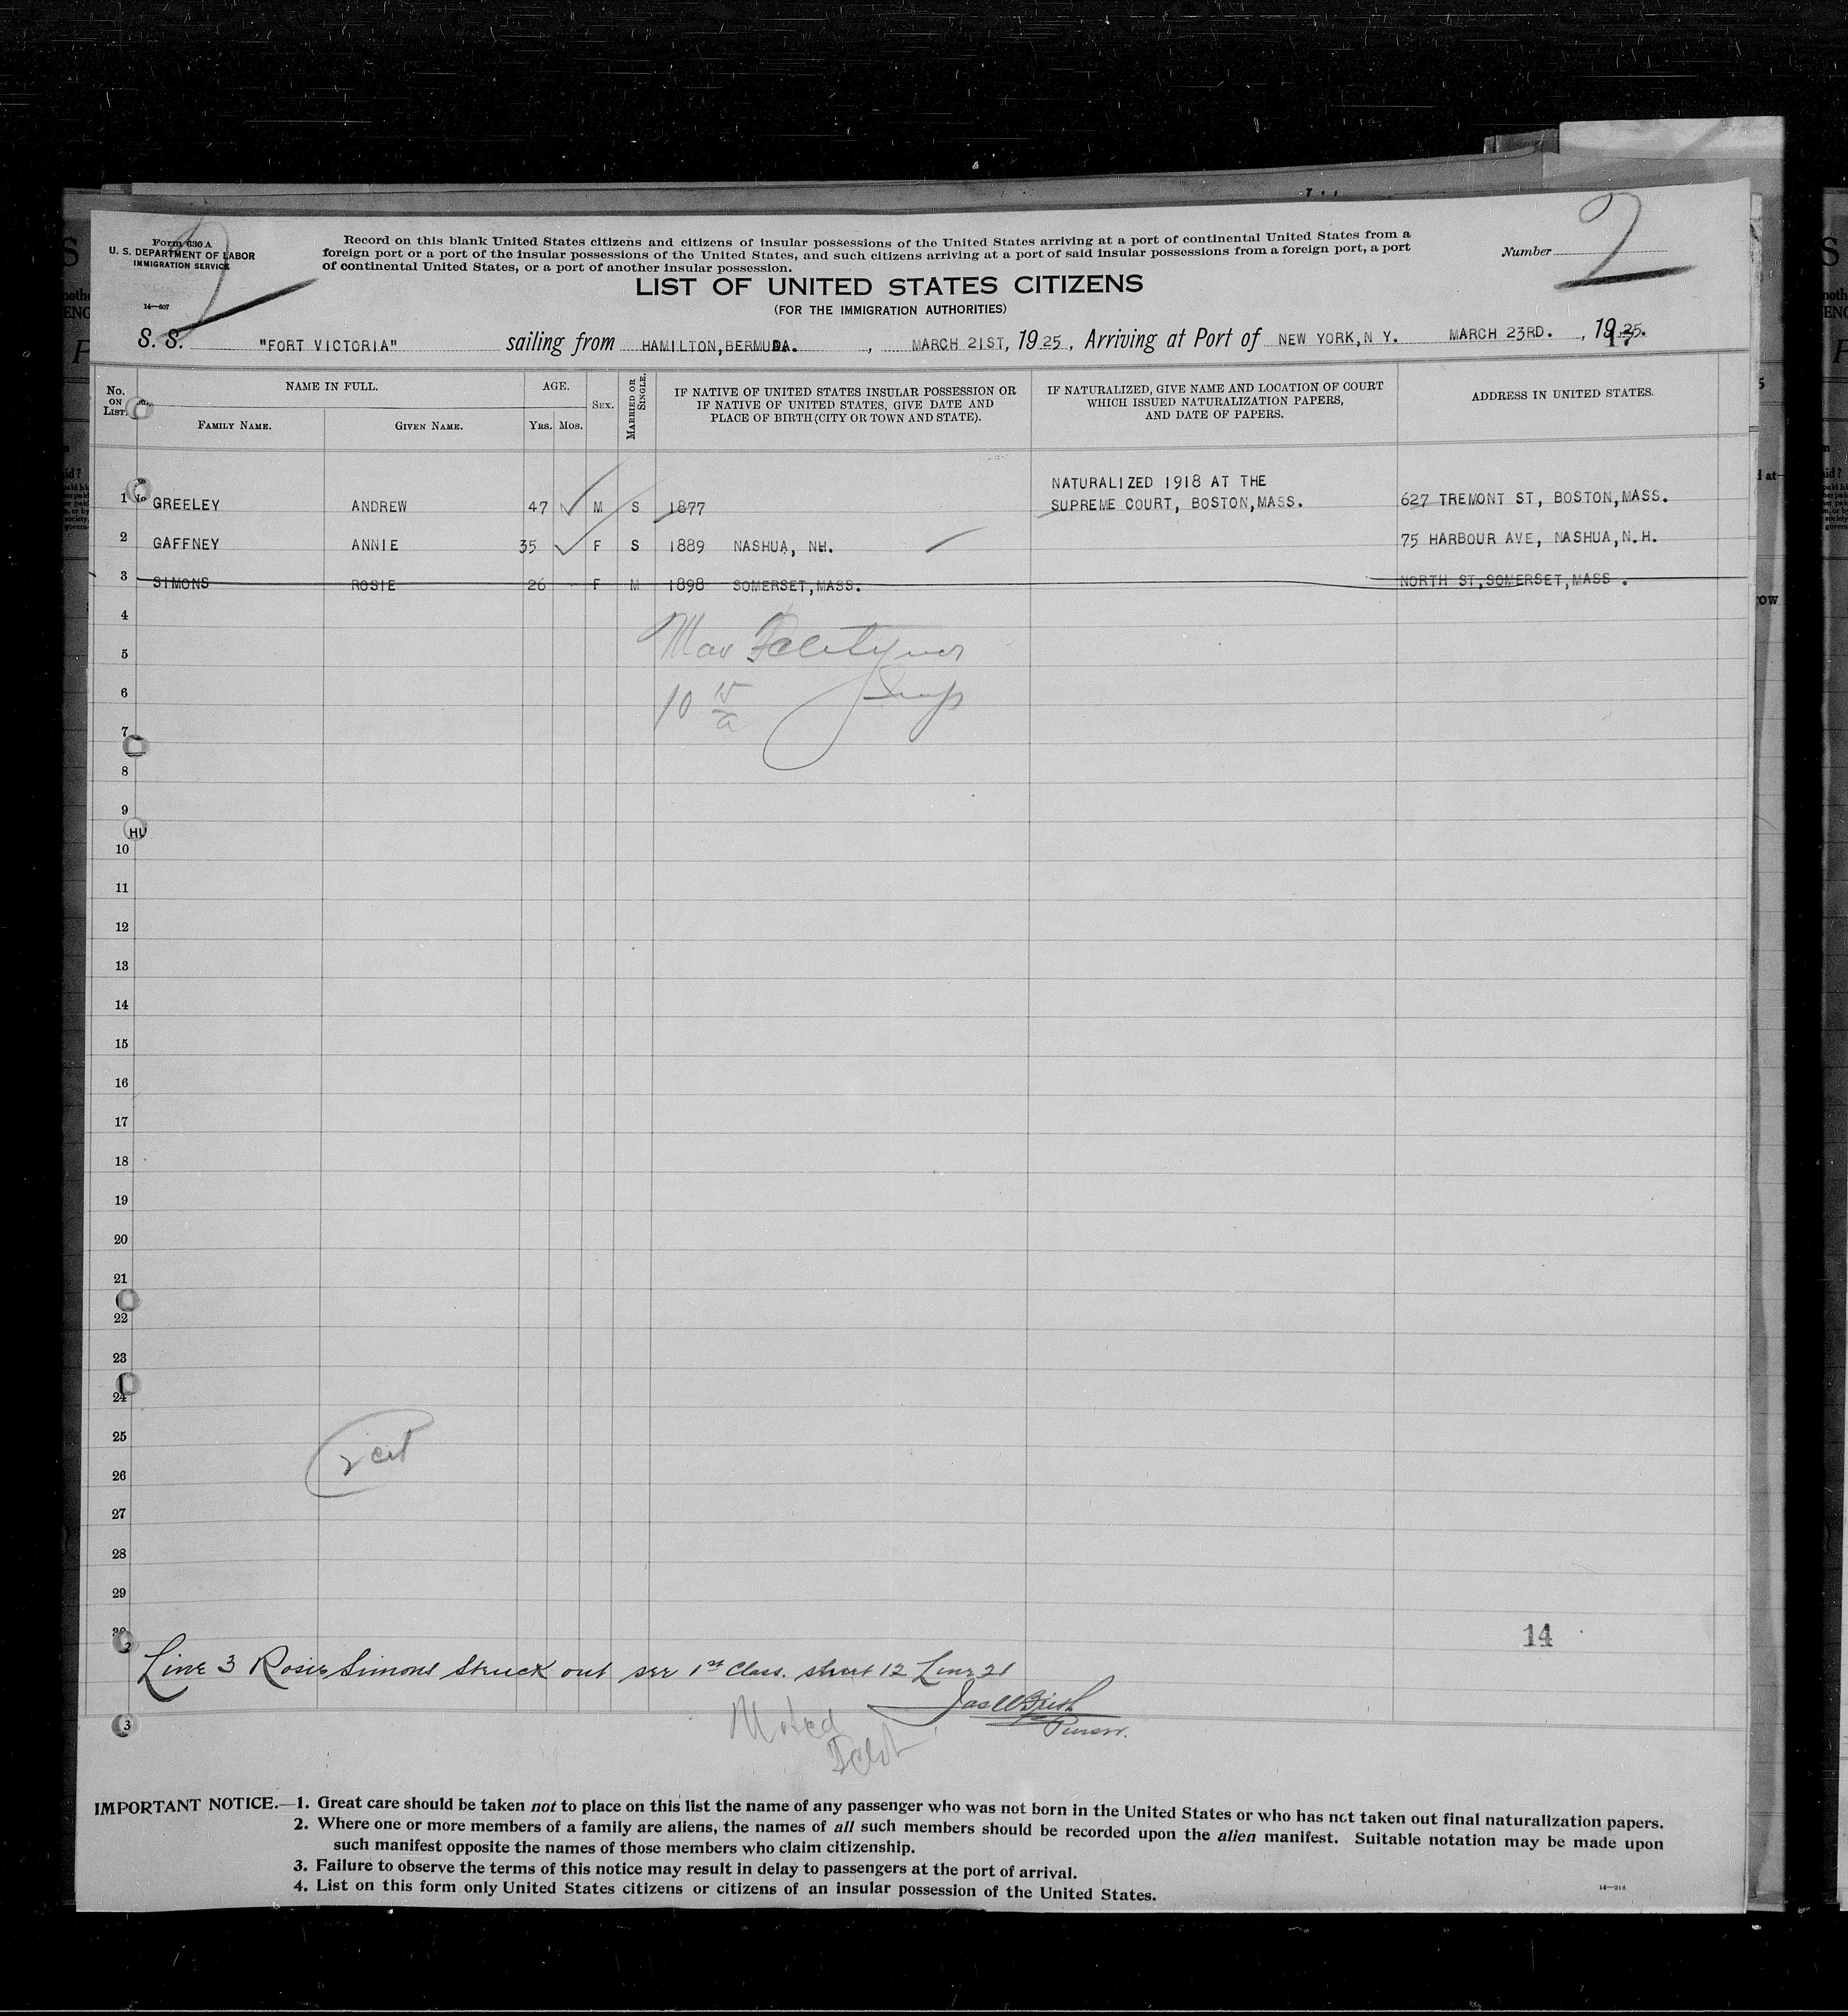 Form 630 A
U. S. DEPARTMENT OF LABOR
IMMIGRATION SERVICE
14—607
Record on this blank United States citizens and citizens of insular possessions of the United States arriving at a port of continental United States from a
foreign port or a port of the insular possessions of the United States, and such citizens arriving at a port of said insular possessions from a foreign port, a port
of continental United States, or a port of another insular possession.
Number 2
LIST OF UNITED STATES CITIZENS
(FOR THE IMMIGRATION AUTHORITIES)
S. S. "FORT VICTORIA" sailing from HAMILTON, BERMUDA. , MARCH 21ST, 1925, Arriving at Port of NEW YORK, N Y. MARCH 23RD. , 1925.
No. ON LIST.
NAME IN FULL.
FAMILY NAME.
GIVEN NAME.
AGE.
YRS.
MOS.
SEX.
MARRIED OR SINGLE.
IF NATIVE OF UNITED STATES INSULAR POSSESSION OR
IF NATIVE OF UNITED STATES, GIVE DATE AND
PLACE OF BIRTH (CITY OR TOWN AND STATE).
IF NATURALIZED, GIVE NAME AND LOCATION OF COURT
WHICH ISSUED NATURALIZATION PAPERS,
AND DATE OF PAPERS.
ADDRESS IN UNITED STATES.
NATURALIZED 1918 AT THE
1 GREELEY ANDREW 47 M S 1877 SUPREME COURT, BOSTON, MASS. 627 TREMONT ST, BOSTON, MASS.
2 GAFFNEY ANNIE 35 F S 1889 NASHUA, NH. 75 HARBOUR AVE, NASHUA, N.H.
3 SIMONS ROSIE 26 F M 1898 SOMERSET, MASS. NORTH ST, SOMERSET, MASS .
4
5
6
10 15/a Insp
7
8
9
HU
10
11
12
13
14
15
16
17
18
19
20
21
22
23
24
25
2 cit
26
27
28
29
30
14
Line 3 Rosie Simons Struck out see 1st Class. sheet 12 Line 21
Purser.
Noted
3
IMPORTANT NOTICE.—1. Great care should be taken not to place on this list the name of any passenger who was not born in the United States or who has not taken out final naturalization papers.
2. Where one or more members of a family are aliens, the names of all such members should be recorded upon the alien manifest. Suitable notation may be made upon
such manifest opposite the names of those members who claim citizenship.
3. Failure to observe the terms of this notice may result in delay to passengers at the port of arrival.
4. List on this form only United States citizens or citizens of an insular possession of the United States.
14—218